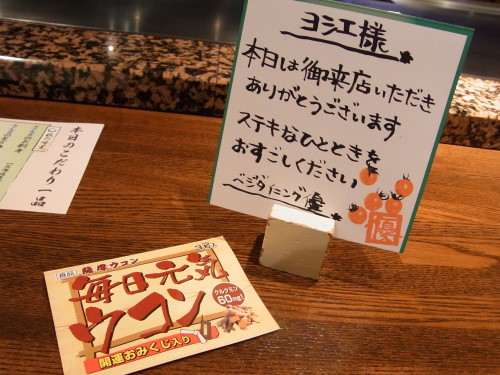 ヨシ江様
本日は御来店いただき
ありがとうございます
ステキなひとときを
おすごしください
ベジダイニング優
優
本日のこだわり一品
3粒入
薩摩ウコン
毎日元気
ウコン
クルクミン
60mg!
開運おみくじ入り